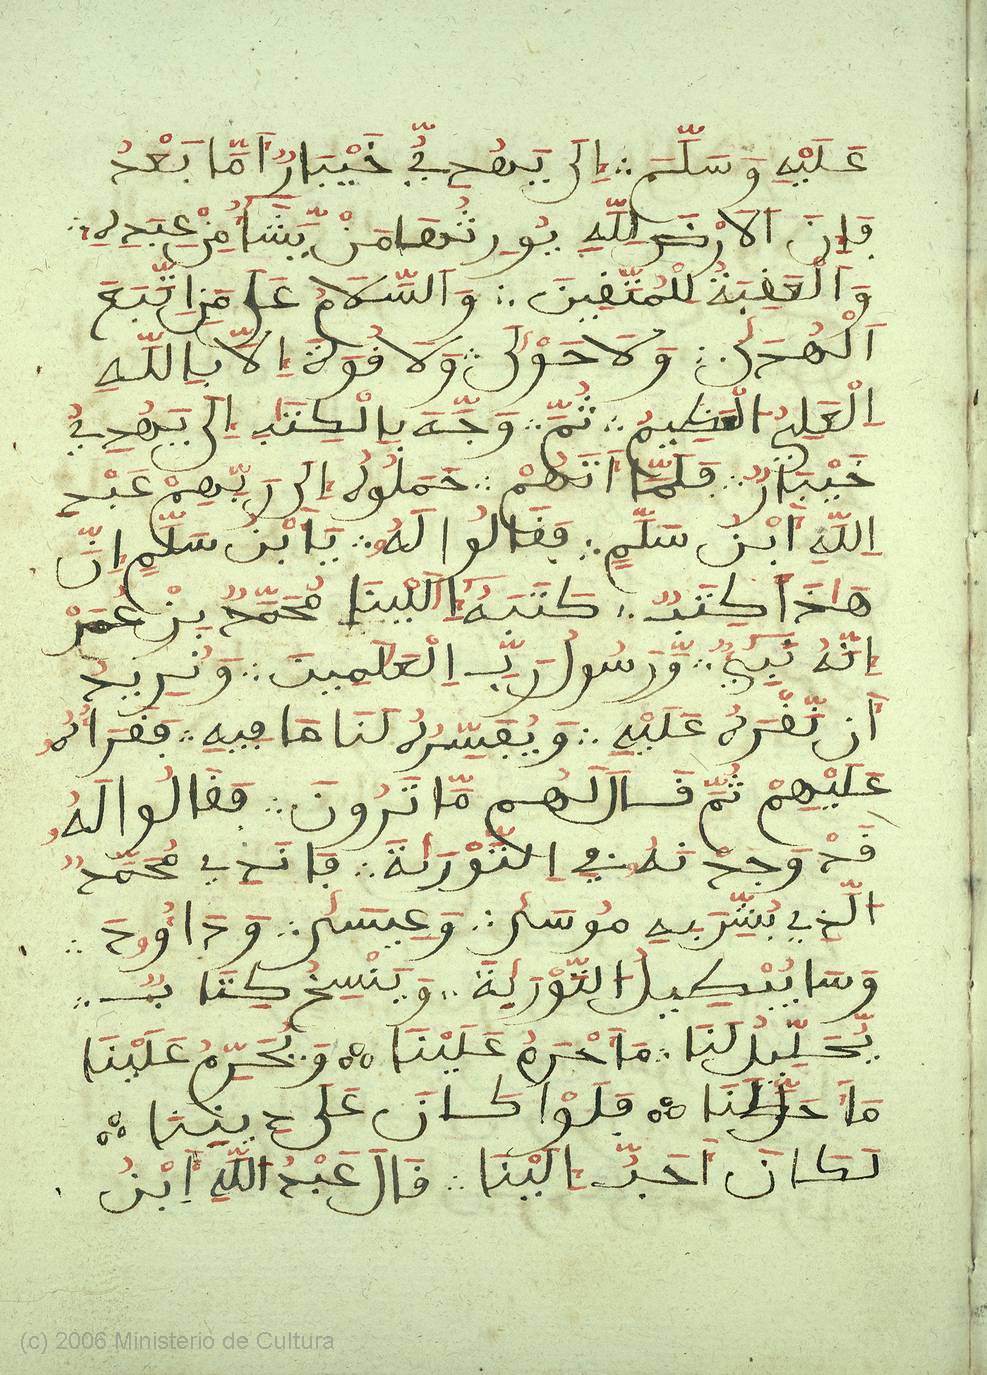 عَلَيْهِ وَسَلَّمَ ۞ إِلَى يَهُدِيِّ خَيْبَارٍ أَمَّا بَعْدُ
فَإِنَ الَارْضَ لِلَّهِ يُورِثُهَا مَنْ يَّشَآُ مِنْ عِبَدِهِ
وَالْعَقِبَةُ لِلْمُتَّقِينَ ۞ وَالسَّلَامُ عَلَى مَنِ اتَّبَعَ
الْهُدَى ۞ وَلَا حَوْلَ ۞ وَلَا قُوَةَ إِلَّا بِاللَّهِ
الْعَلِيِّ الْعَظِيمِ ۞ ثُمَّ ۞ وَجَّهَ بِالْكِتَبِ إِلَى يَهُدِيِّ
خَيْبَارٍ ۞ فَلَمَّا أَتَهُمْ ۞ حَمَلُوهُ إِلَى رَبِّهِمْ عَبْدِ
اللَّهِ ابْنُ سَلَّمٍ ۞ فَقَالُوا لَهُ ۞ يَا ابْنُ سَلَّمٍ إِنَّ
هَذَا كِتَبٌ ۞ كَتَبَهُ إِلَيْنَا مُحَمَّدٌ يَزْعُمُ
إِنَّهُ نَبِيٌّ ۞ وَّرَسُولُ رَبِّ الْعَلَمِينَ ۞ وَنُرِيدُ
أَن نَّقْرَهُ عَلَيْهِ ۞ وَيُفَسِّرُهُ لَنَا مَا فِيهِ ۞ فَقَرَاهُ
عَلَيْهِمْ ثُمَّ قَالَ لَهُم مَّا تَرُونَ ۞ فَقَالُوا لَهُ
قَدْ وَجَدْنَهُ فِي التَّوْرَيةَ ۞ فَا نَذِي مُحَمَّدٌ
الَّذِي بُشِّرَ بِهِ مُوسَى ۞ وَعِيسَى ۞ وَدَاوُودَ ۞
وَسَايُبْكِيلُ التَّوْرَيةَ ۞ وَيَنْسِخُ كِتَابٌ ۞
يُّحَلِّيلُ لَنَا ۞ مَا حْرَمُ عَلَيْنَا ۞ وَيُحَرِّمُ عَلَيْنَا
مَا حَلَّ لَنَا ۞ فَلَوْا كَانَ عَلَى دِينِنَا ۞
لَكَانَ أَحَبُّ إِلَيْنَا ۞ قَالَ عَبْدُ اللَّهِ ابْنُ
(c) 2006 Ministerio de Cultura